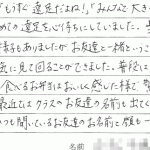 「もうすぐ遠足だよね！」「みんなで大き
めての遠足を心待ちにしていました。
様子もありましたがお友達と一緒というこ
強に見て回ることができました。普段は
食べるお弁当をおいしく感じた様で
最近ではクラスのお友達の名前も出てく
つも聞いているお友達のお名前と顔も一
名前